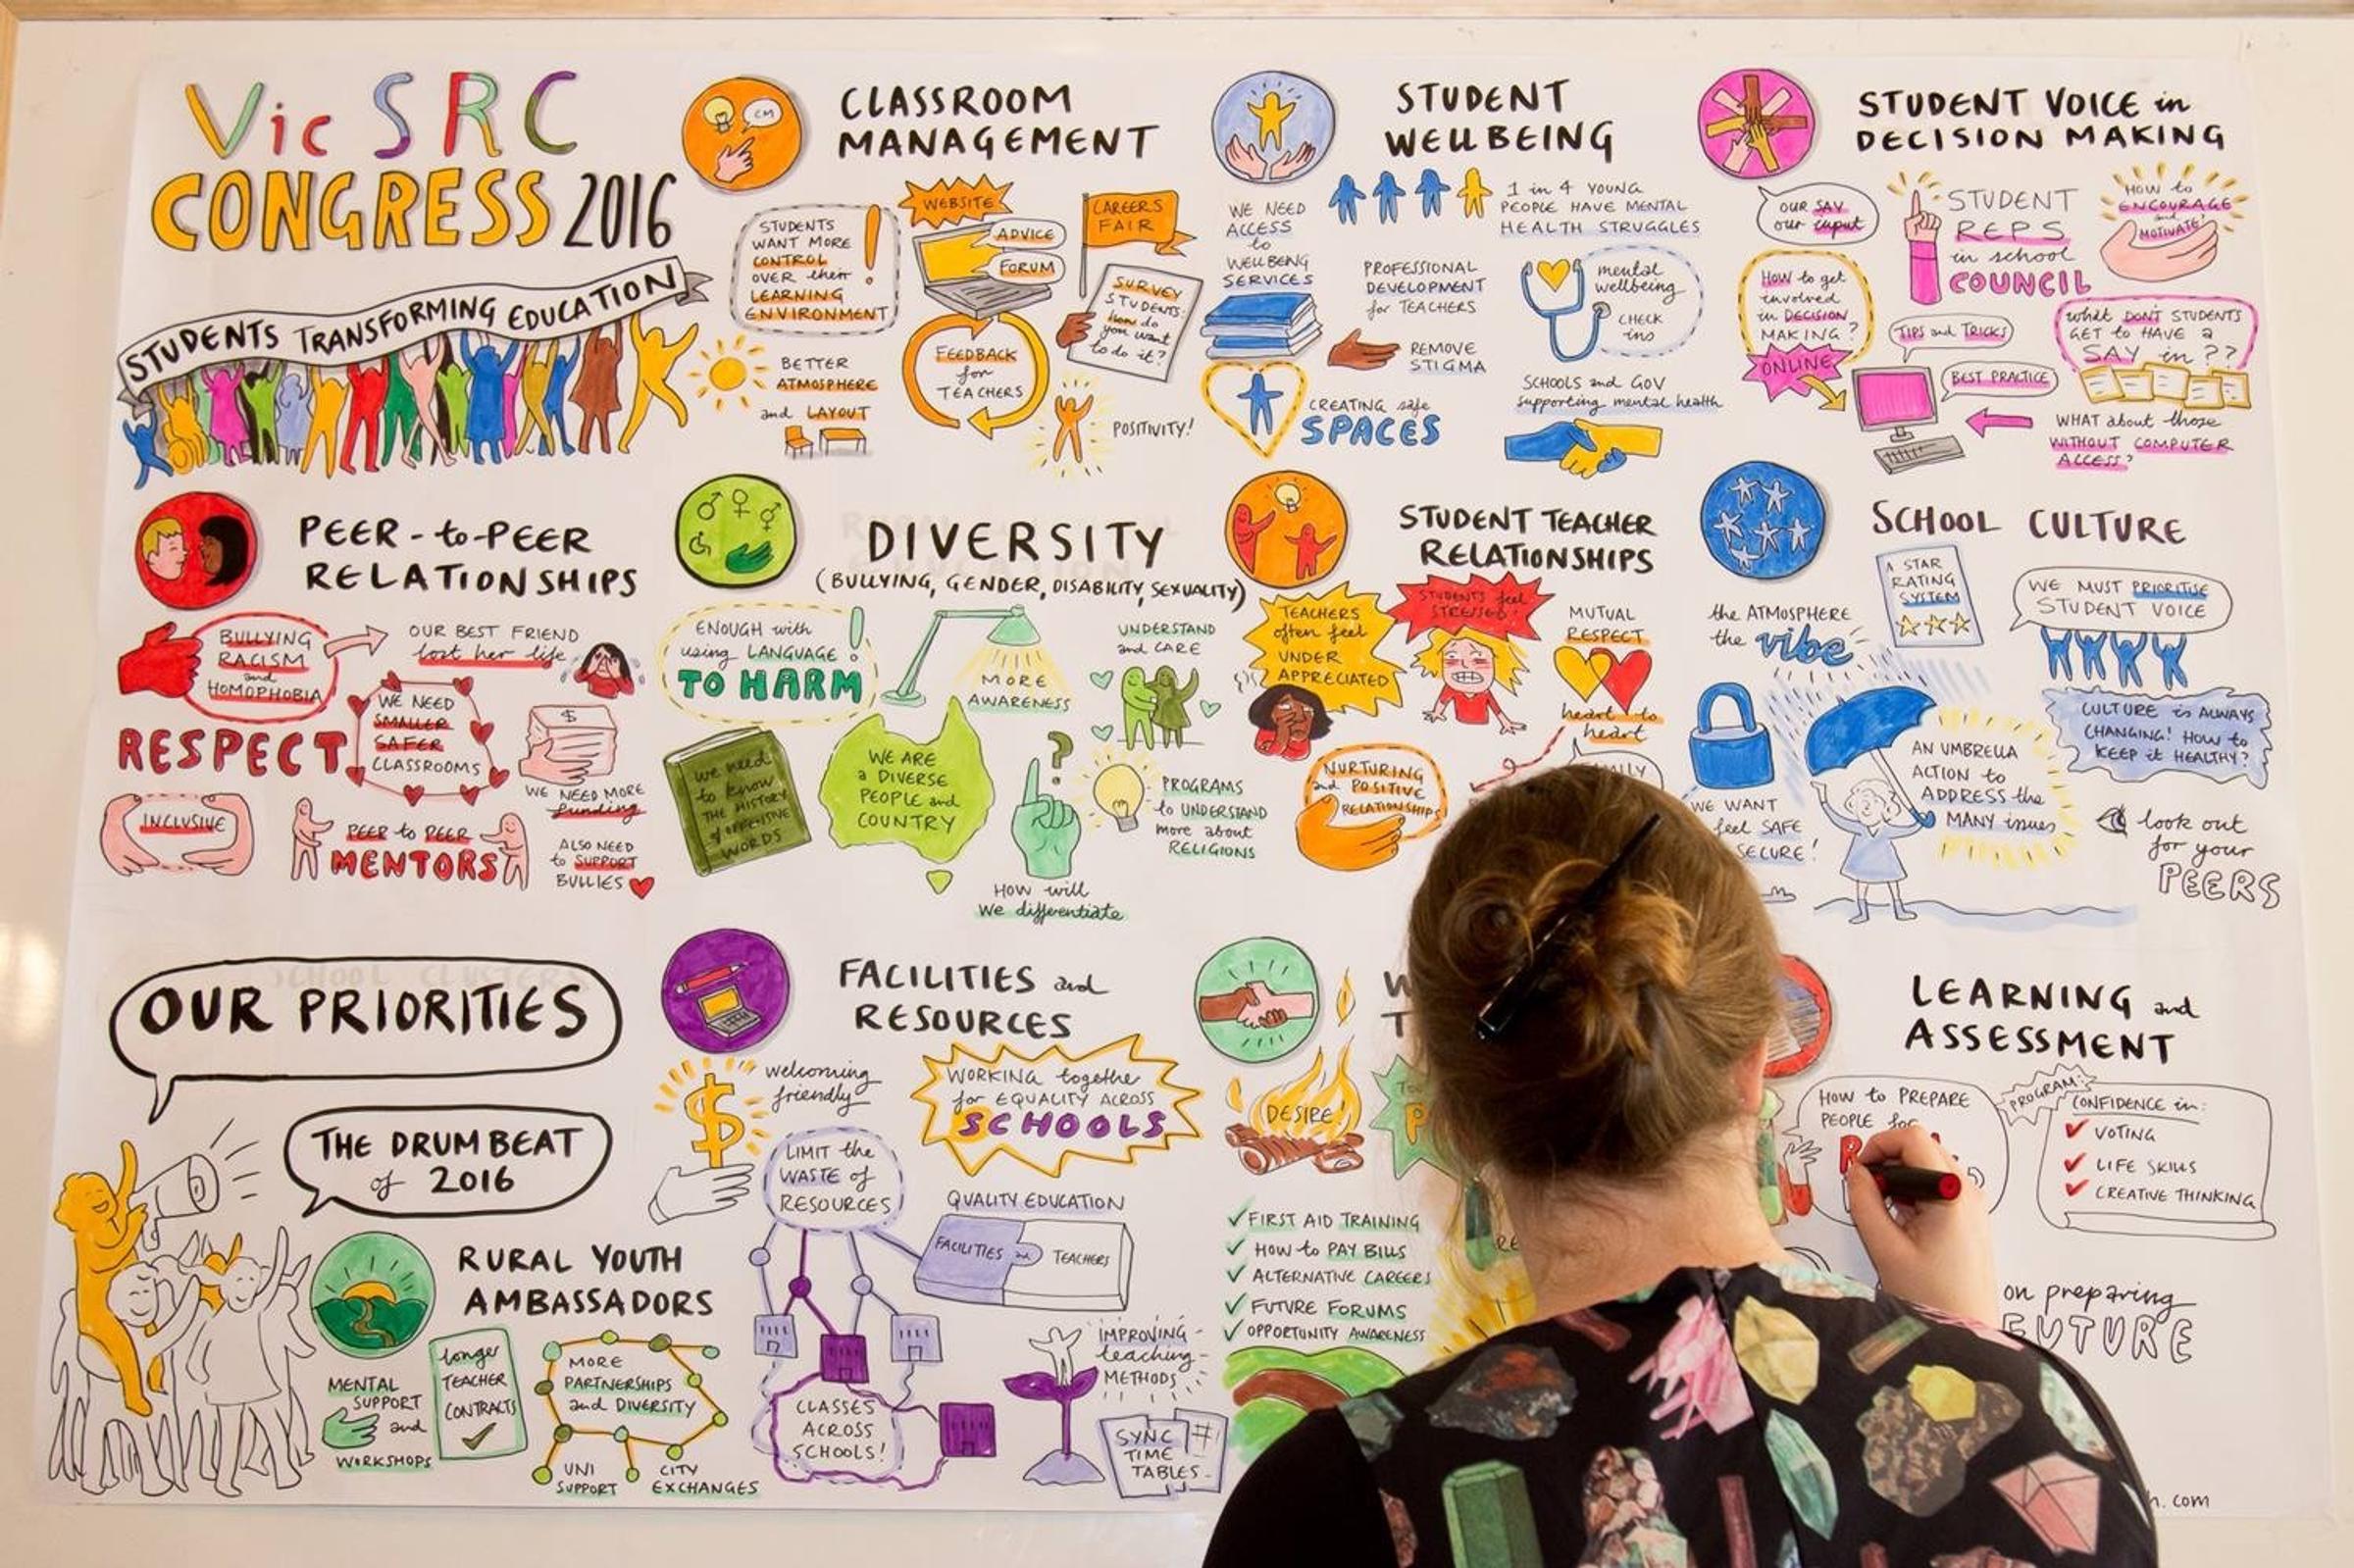 Vic SRC
CONGRESS 2016
STUDENTS TRANSFORMING EDUCATION
CLASSROOM
MANAGEMENT
CM
STUDENTS
WANT MORE
CONTROL
OVER their
LEARNING
ENVIRONMENT
!
WEBSITE
ADVICE
FORUM
CAREERS
FAIR
SURVEY
STUDENTS:
how do
you want
to do it?
BETTER
ATMOSPHERE
and LAYOUT
FEEDBACK
for
TEACHERS
POSITIVITY!
STUDENT
WELLBEING
WE NEED
ACCESS
to
WELLBEING
SERVICES
1 in 4 YOUNG
PEOPLE HAVE MENTAL
HEALTH STRUGGLES
PROFESSIONAL
DEVELOPMENT
for TEACHERS
mental
wellbeing
CHECK
ins
REMOVE
STIGMA
CREATING safe
SPACES
SCHOOLS and GOV
supporting mental health
STUDENT VOICE in
DECISION MAKING
OUR SAY
our input
STUDENT
REPS
in school
COUNCIL
HOW to
ENCOURAGE
and
MOTIVATE?
HOW to get
involved
in DECISION
MAKING?
ONLINE
TIPS and TRICKS
BEST PRACTICE
what DON'T STUDENTS
GET to HAVE a
SAY in??
WHAT about those
WITHOUT COMPUTER
ACCESS?
PEER-to-PEER
RELATIONSHIPS
BULLYING
RACISM
and
HOMOPHOBIA
OUR BEST FRIEND
lost her life
RESPECT
WE NEED
SMALLER
SAFER
CLASSROOMS
$
WE NEED MORE
funding
INCLUSIVE
PEER to PEER
MENTORS
ALSO NEED
to SUPPORT
BULLIES
DIVERSITY
(BULLYING, GENDER, DISABILITY, SEXUALITY)
ENOUGH with
using LANGUAGE
TO HARM
!
MORE
AWARENESS
UNDERSTAND
and CARE
we need
to know
THE HISTORY
of OFFENSIVE
WORDS
WE ARE
a DIVERSE
PEOPLE and
COUNTRY
?
HOW will
we differentiate
PROGRAMS
to UNDERSTAND
more about
RELIGIONS
STUDENT TEACHER
RELATIONSHIPS
TEACHERS
often feel
UNDER
APPRECIATED
STUDENTS feel
STRESSED!
MUTUAL
RESPECT
heart to
heart
NURTURING
and POSITIVE
RELATIONSHIPS
SCHOOL CULTURE
the ATMOSPHERE
the vibe
A STAR
RATING
SYSTEM
WE MUST PRIORITISE
STUDENT VOICE
CULTURE is ALWAYS
CHANGING! HOW to
KEEP it HEALTHY?
WE WANT
feel SAFE
SECURE!
AN UMBRELLA
ACTION to
ADDRESS the
MANY issues
look out
for your
PEERS
OUR PRIORITIES
THE DRUMBEAT
of 2016
RURAL YOUTH
AMBASSADORS
MENTAL
SUPPORT
and
WORKSHOPS
longer
TEACHER
CONTRACTS
MORE
PARTNERSHIPS
and DIVERSITY
UNI
SUPPORT
CITY
EXCHANGES
FACILITIES and
RESOURCES
$
welcoming
friendly
WORKING together
for EQUALITY ACROSS
SCHOOLS
LIMIT the
WASTE of
RESOURCES
QUALITY EDUCATION
FACILITIES and TEACHERS
CLASSES
ACROSS
SCHOOLS!
IMPROVING
teaching
METHODS
SYNC
TIME
TABLES
DESIRE!
FIRST AID TRAINING
HOW to PAY BILLS
ALTERNATIVE CAREERS
FUTURE FORUMS
OPPORTUNITY AWARENESS
LEARNING and
ASSESSMENT
HOW to PREPARE
PEOPLE for
PROGRAM:
CONFIDENCE in:
VOTING
LIFE SKILLS
CREATIVE THINKING
on preparing
FUTURE
.com